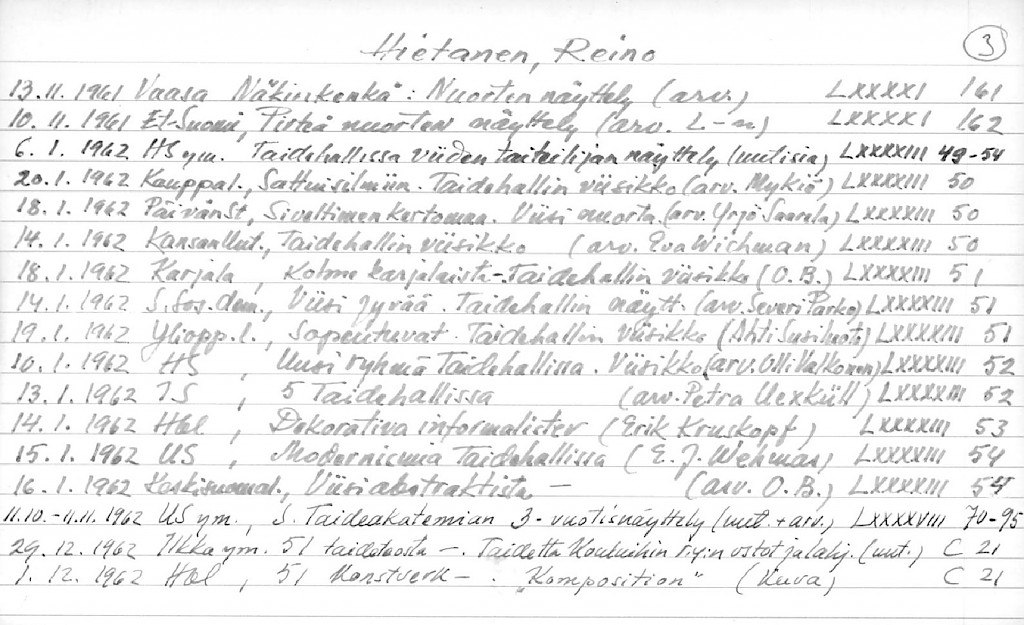 Hietanen, Reino
3
13.11.1961 Vaasa Näkinkenkä: Nuorten näyttely (arv.) LXXXXI 161
10.11.1961 Et-Suomi, Pirteä nuorten näyttely (arv. L-n) LXXXXI 162
6.1.1962 HS ym. Taidehallissa viiden taiteilijan näyttely (uutisia) LXXXXIII 49-54
20.1.1962 Kauppal., Sattuisilmiin. Taidehallin viisikko (arv. Mykiö) LXXXXIII 50
18.1.1962 PäivänSt, Siveltimen kertomaa. Viisi nuorta. (arv. Yrjö Saarela) LXXXXIII 50
14.1.1962 KansanUut., Taidehallin viisikko (arv. Eva Wichman) LXXXXIII 50
18.1.1962 Karjala, Kolme karjalaista - Taidehallin viisikko (O.B.) LXXXXIII 51
14.1.1962 S.Sos.dem., Viisi jyvää. Taidehallin näytt. (arv. Severi Parko) LXXXXIII 51
19.1.1962 Yliopp.l., Sopeutuvat. Taidehallin viisikko (Ahti Susiluoto) LXXXXIII 51
10.1.1962 HS, Uusi ryhmä Taidehallissa. Viisikko (arv. Olli Valkonen) LXXXXIII 52
13.1.1962 IS, 5 Taidehallissa (arv. Petra Uexküll) LXXXXIII 52
14.1.1962 Hbl, Dekorativa informalister (Erik Kruskopf) LXXXXIII 53
15.1.1962 US, Modernismia Taidehallissa (E.J. Vehmas) LXXXXIII 54
16.1.1962 Keskisuomal., Viisi abstraktista - (arv. O.B.) LXXXXIII 54
11.10.-11.11.1962 US ym., S. Taideakatemian 3-vuotisnäyttely (uut. + arv.) LXXXXVIII 70-95
29.12.1962 Ilkka ym. 51 taideteosta -. Taidetta Kouluihin ry:n ostot ja lahj. (uut.) C 21
1.12.1962 Hbl, 51 konstverk - . "Komposition" (kuva) C 21